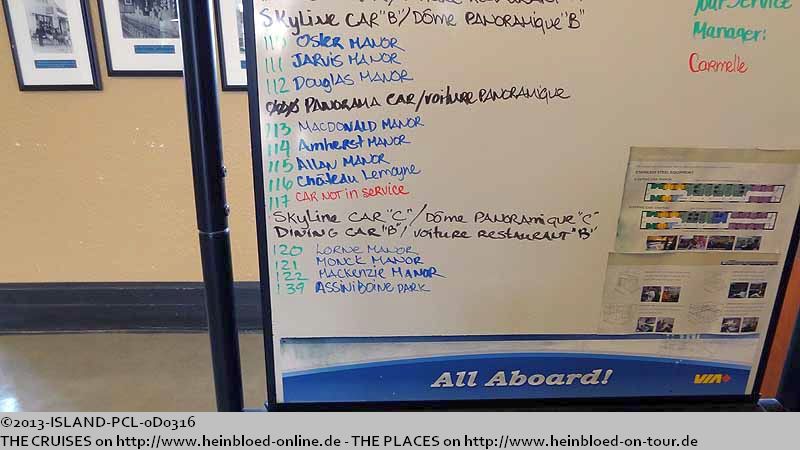 SKYLINE CAR "B"/DÔME PANORAMIQUE "B"
110 OSLER MANOR
111 JARVIS MANOR
112 DOUGLAS MANOR
PANORAMA CAR/VOITURE PANORAMIQUE
113 MACDONALD MANOR
114 Amherst MANOR
115 ALLAN MANOR
116 Château Lemoyne
117 CAR NOT IN SERVICE
SKYLINE CAR "C"/DÔME PANORAMIQUE "C"
DINING CAR "B"/VOITURE RESTAURANT "B"
120 LORNE MANOR
121 MONCK MANOR
122 MACKENZIE MANOR
139 ASSINIBOINE PARK
Your Service
Manager:
Carmelle
STAINLESS STEEL EQUIPMENT
All Aboard!
VIA
©2013-ISLAND-PCL-0D0316
THE CRUISES on http://www.heinbloed-online.de - THE PLACES on http://www.heinbloed-on-tour.de